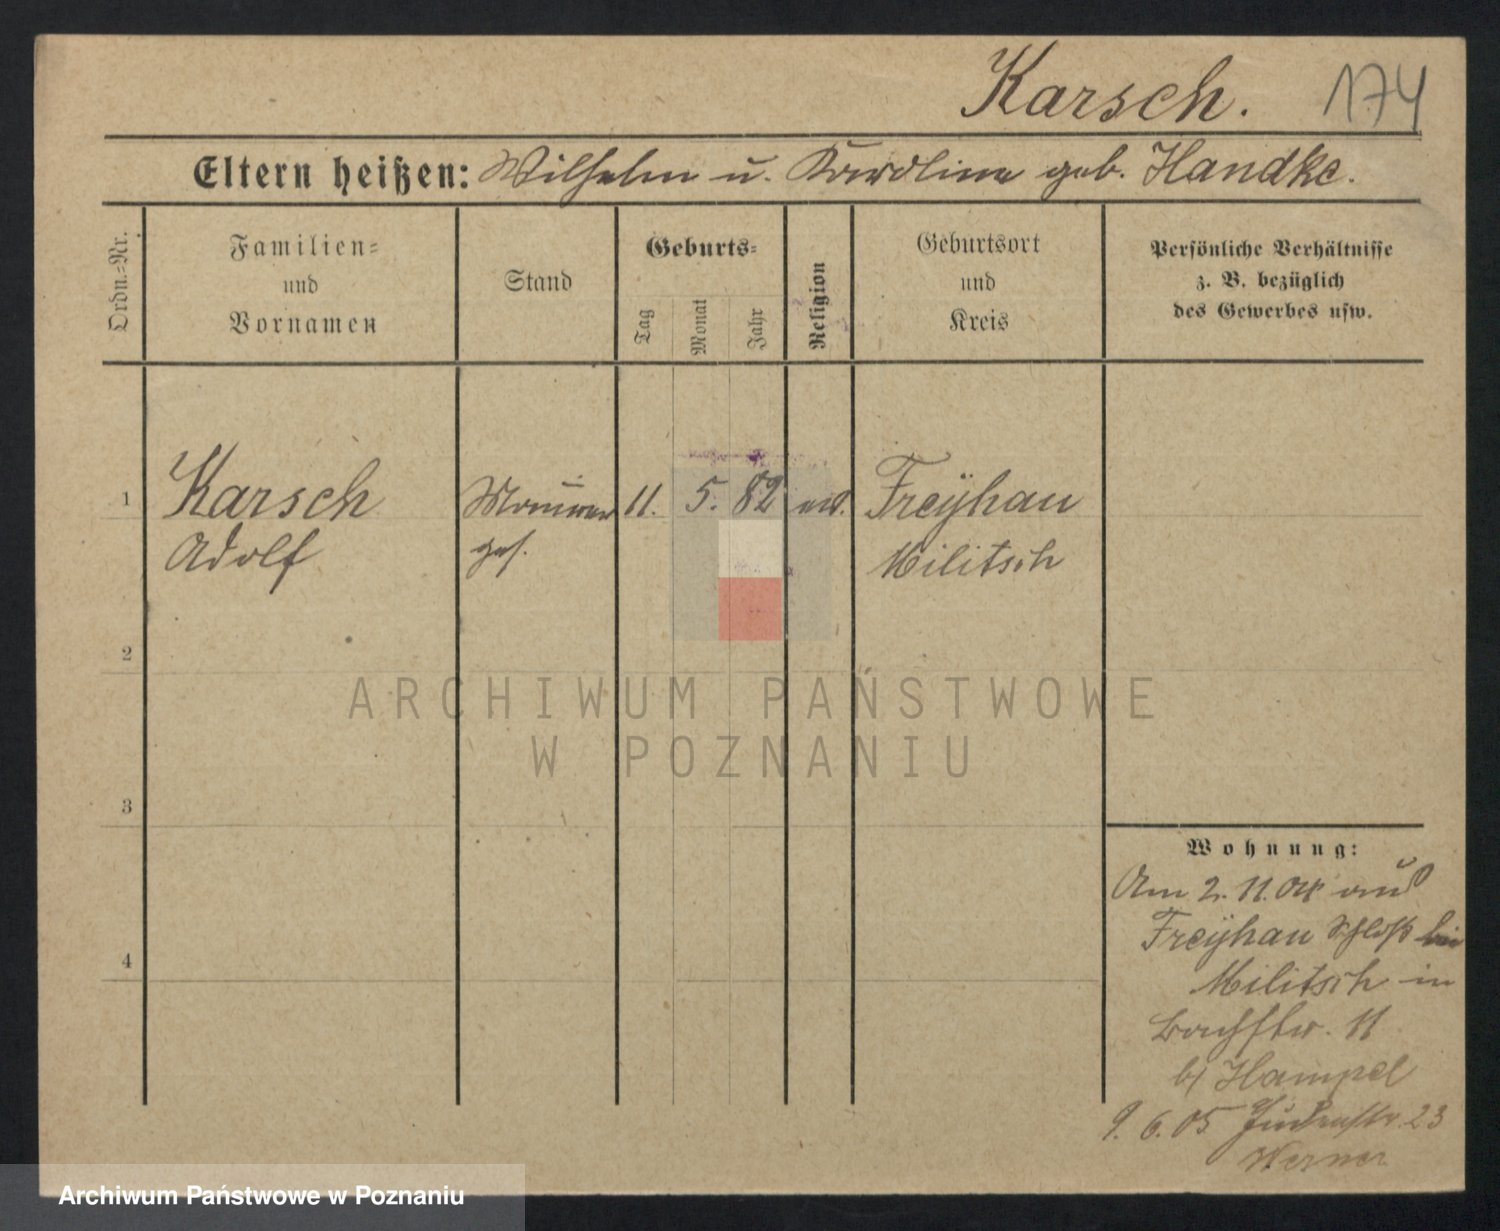 Karsch. 174
Eltern heißen: Wilhelm u. Karoline geb. Handke.
Ordn.-Nr.
Familien-
und
Vornamen
Stand
Geburts-
Tag
Monat
Jahr
Religion
Geburtsort
und
Kreis
Persönliche Verhältnisse
z. B. bezüglich
des Gewerbes usw.
1 Karsch Maurer 11. 5. 82 Freyhau
Adolf ges. Militsch
2
3
4
ARCHIWUM PAŃSTWOWE
W POZNANIU
Wohnung:
Am 2. 11. 04 aus
Freyhau Schloß bei
Militsch in
Bachstr. 11
b/ Hampel
9. 6. 05 Judenstr. 23
Werner
Archiwum Państwowe w Poznaniu